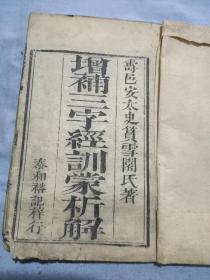 壽邑安太史貢雪園氏著
增補三字經訓蒙析解
泰和裕記梓行